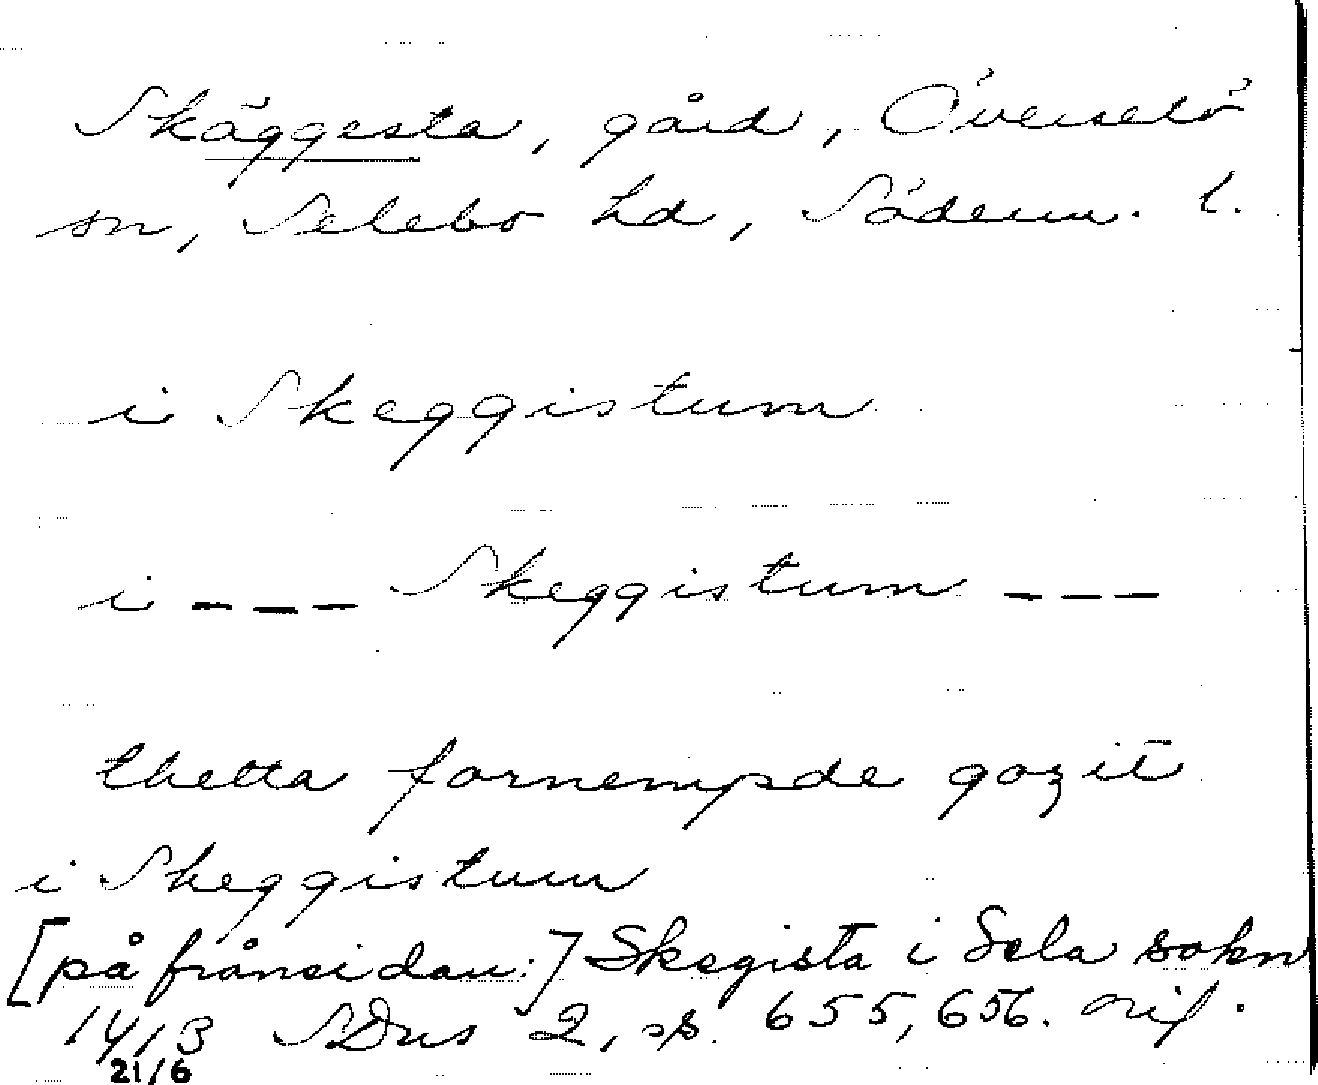 Skäggesta, gård, Överselö
sn, Selebo hd, Söderm. l.
i Skeggistum
i --- Skeggistum ---
thetta fornempde gozit
i Skeggistum
[på frånsidan:] Skegista i Sela sokn
1413 SDns 2, sp. 655, 656. orig.
21/6